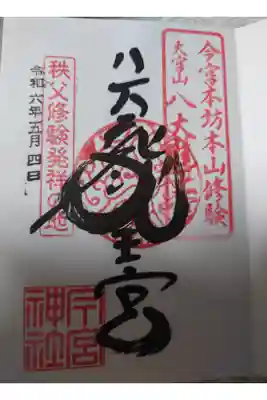 今宮本坊本山修験
大宮山
八大龍王宮
秩父修験発祥の地
令和六年五月四日
今宮神社